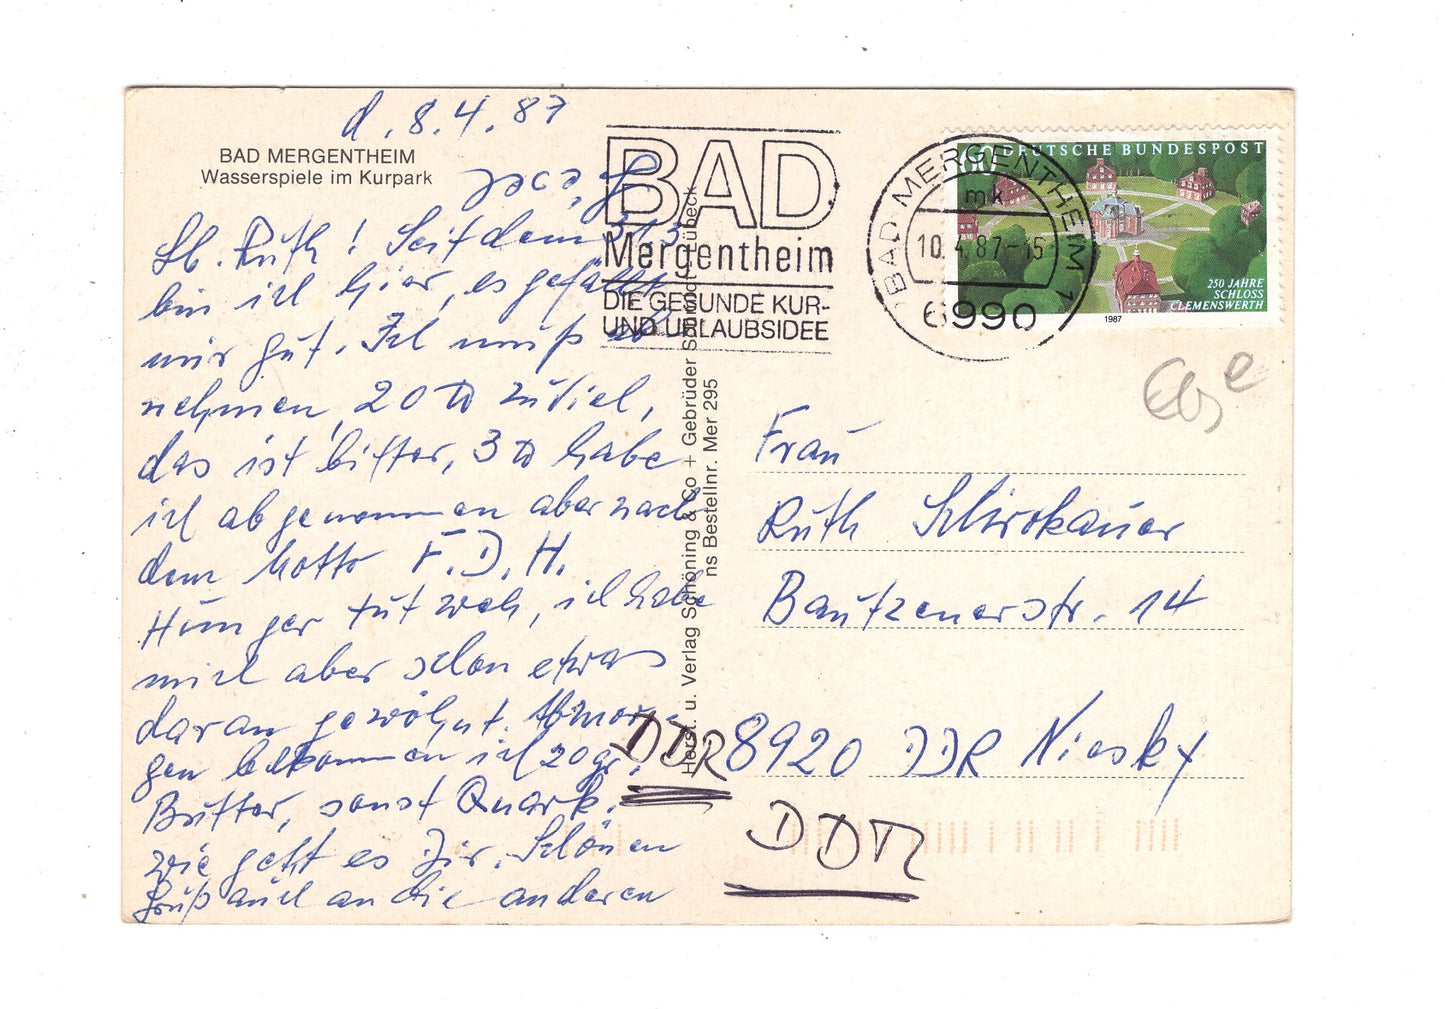 d. 8.4.87
BAD MERGENTHEIM
Wasserspiele im Kurpark
Lb. Ruth! Seit dem 31.3
bin ich hier, es gefällt
mir gut. Ich muß ab
nehmen, 20 ℔ zuviel,
das ist bitter, 3 ℔ habe
ich abgenommen aber nach
dem Motto F.D.H.
Hunger tut weh, ich habe
mich aber schon etwas
daran gewöhnt. Mor-
gen bekommen ich 20 gr.
Butter, sonst Quark.
wie geht es Dir. Schönen
Gruß auch an die anderen
BAD
Mergentheim
DIE GESUNDE KUR-
UND URLAUBSIDEE
BAD MERGENTHEIM 1
mk
10.4.87-15
6990
60 DEUTSCHE BUNDESPOST
250 JAHRE
SCHLOSS
CLEMENSWERTH
1987
Horst. u. Verlag Schöning & Co + Gebrüder Schmidt Lübeck
ns Bestellnr. Mer 295
Frau
Ruth Schirokauer
Bautzenerstr. 14
DDR 8920 DDR Niesky
DDR